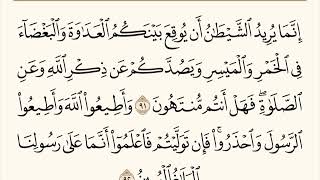 إِنَّمَا يُرِيدُ ٱلشَّيْطَٰنُ أَن يُوقِعَ بَيْنَكُمُ ٱلْعَدَٰوَةَ وَٱلْبَغْضَآءَ
فِى ٱلْخَمْرِ وَٱلْمَيْسِرِ وَيَصُدَّكُمْ عَن ذِكْرِ ٱللَّهِ وَعَنِ
ٱلصَّلَوٰةِ ۖ فَهَلْ أَنتُم مُّنتَهُونَ ٩١ وَأَطِيعُوا۟ ٱللَّهَ وَأَطِيعُوا۟
ٱلرَّسُولَ وَٱحْذَرُوا۟ ۚ فَإِن تَوَلَّيْتُمْ فَٱعْلَمُوٓا۟ أَنَّمَا عَلَىٰ رَسُولِنَا
ٱلْبَلَٰغُ ٱلْمُبِينُ ٩٢